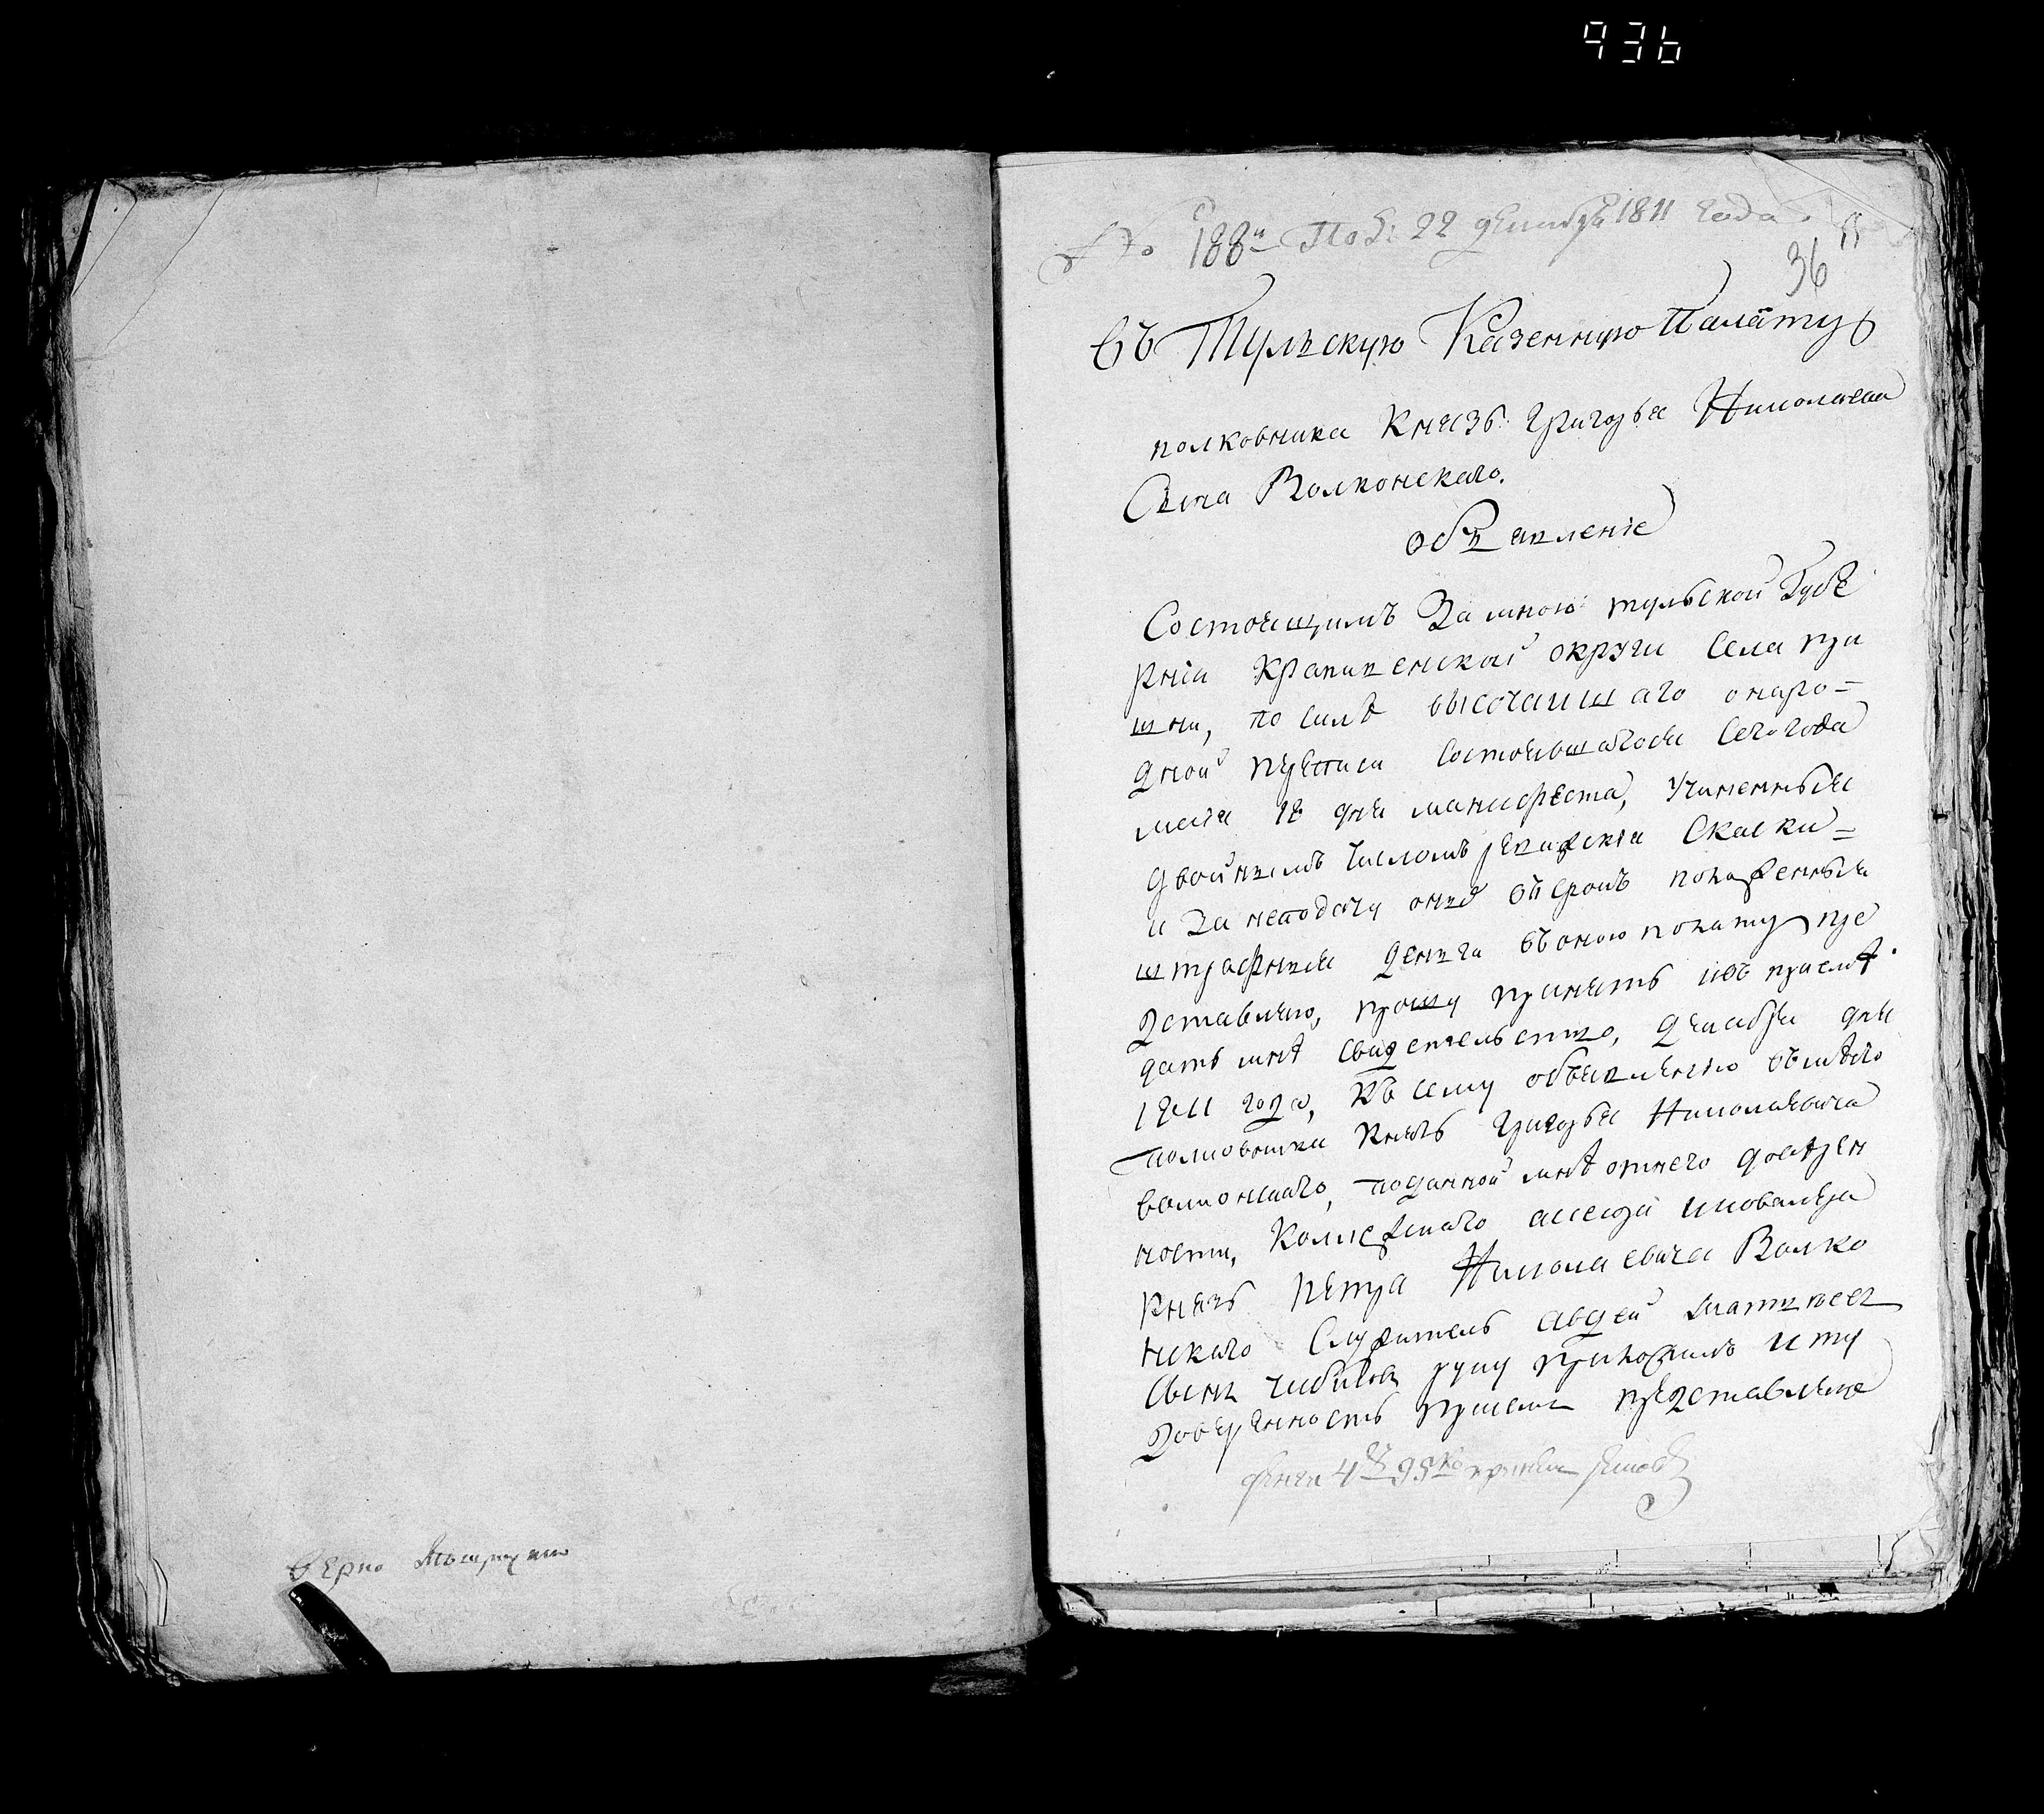 936
№ 188й Под: 22 декабря 1811 года
36
Въ Тульскую Казенную Палату
полковника Князь Григорья Николаева
Сына Волконскаго.
объявленіе
Состоящимъ За мною тульской Губе
рніи Крапивенской округи Села при
шни, по силѣ высочайшаго о наро=
дной переписи Состоявшагося Сего года
маія 18 дня манифеста, Учиненныя
двойнымъ Числомъ ревижскія Скаски=
и За неподачу оныхъ въ срокъ положенныя
штрафныя деньги въ оною полату пре
дставляю, прошу принять и въ приемѣ
дать мнѣ свидетельство, декабря дня
1811 года, Къ сему объявленію въмѣсто
полковника Князь Григорья Николаевича
волконскаго, по данной мнѣ отнего довѣрен
ности, Колежскаго асесора и ковалера
Князь Петра Николаевича Волко
нскаго Служитель авдей Матвѣевъ
Сынъ руку приложилъ и ту
доверенность при семъ представляю
денги 4 р 95 ко принялъ
верно